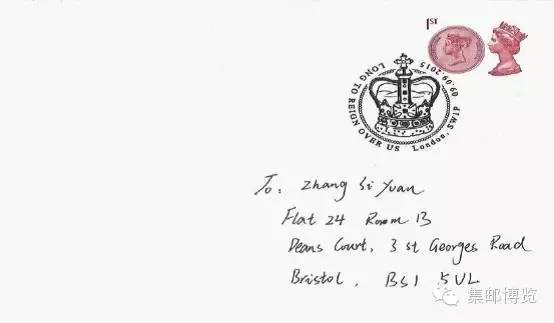 1ST
LONG TO REIGN OVER US London, SW1P 09.09.2015
To: Zhang Si Yuan
Flat 24 Room 13
Deans Court, 3 st Georges Road
Bristol, BS1 5UL
集邮博览